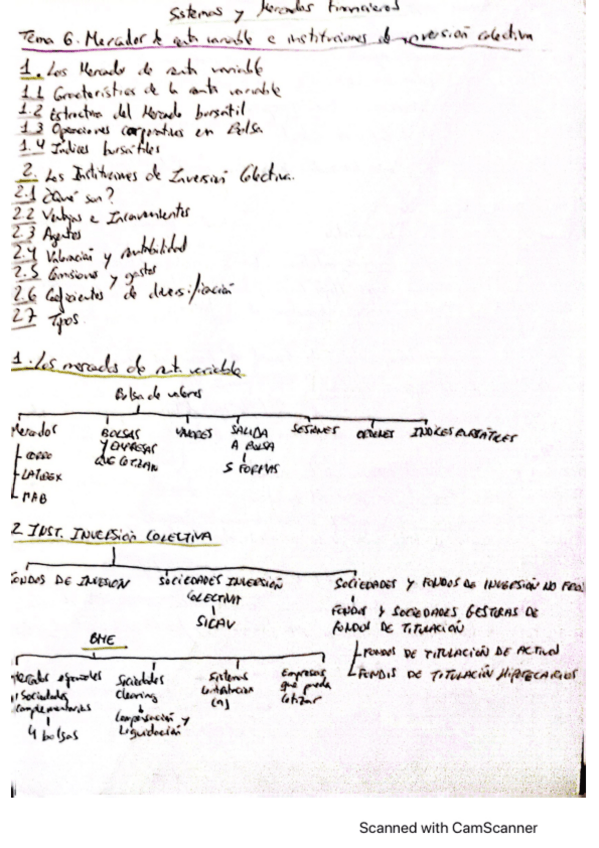 Sistemas y Mercados Financieros
Tema 6. Mercados de renta variable e instituciones de inversión colectiva
1. Los Mercados de renta variable
1.1 Características de la renta variable
1.2 Estructura del Mercado bursátil
1.3 Operaciones corporativas en Bolsa
1.4 Indices bursátiles
2. Las Instituciones de Inversión Colectiva.
2.1 ¿Qué son?
2.2 Ventajas e Inconvenientes
2.3 Agentes
2.4 Valoración y rentabilidad
2.5 Comisiones y gastos
2.6 Coeficientes de diversificación
2.7 Tipos.
1. Los mercados de renta variable
Bolsa de valores
Mercados BOLSAS VALORES SALIDA SESIONES ORDENES INDICES BURSÁTILES
CORRO Y EMPRESAS A BOLSA
LATIBEX QUE COTIZAN 5 FORMAS
MAB
2 INST. INVERSIÓN COLECTIVA
FONDOS DE INVERSION SOCIEDADES INVERSIÓN SOCIEDADES Y FONDOS DE INVERSIÓN NO
COLECTIVA FONDOS Y SOCIEDADES GESTORAS DE
SICAV FONDOS DE TITULACIÓN
BME FONDOS DE TITULACIÓN DE ACTIVOS
FONDOS DE TITULACIÓN HIPOTECARIOS
Mercados españoles Sociedades Sistemas Empresas
y Sociedades Clearing Contratación que pueda
complementarias (4) Cotizar
4 bolsas Compensación y
Liquidación
Scanned with CamScanner